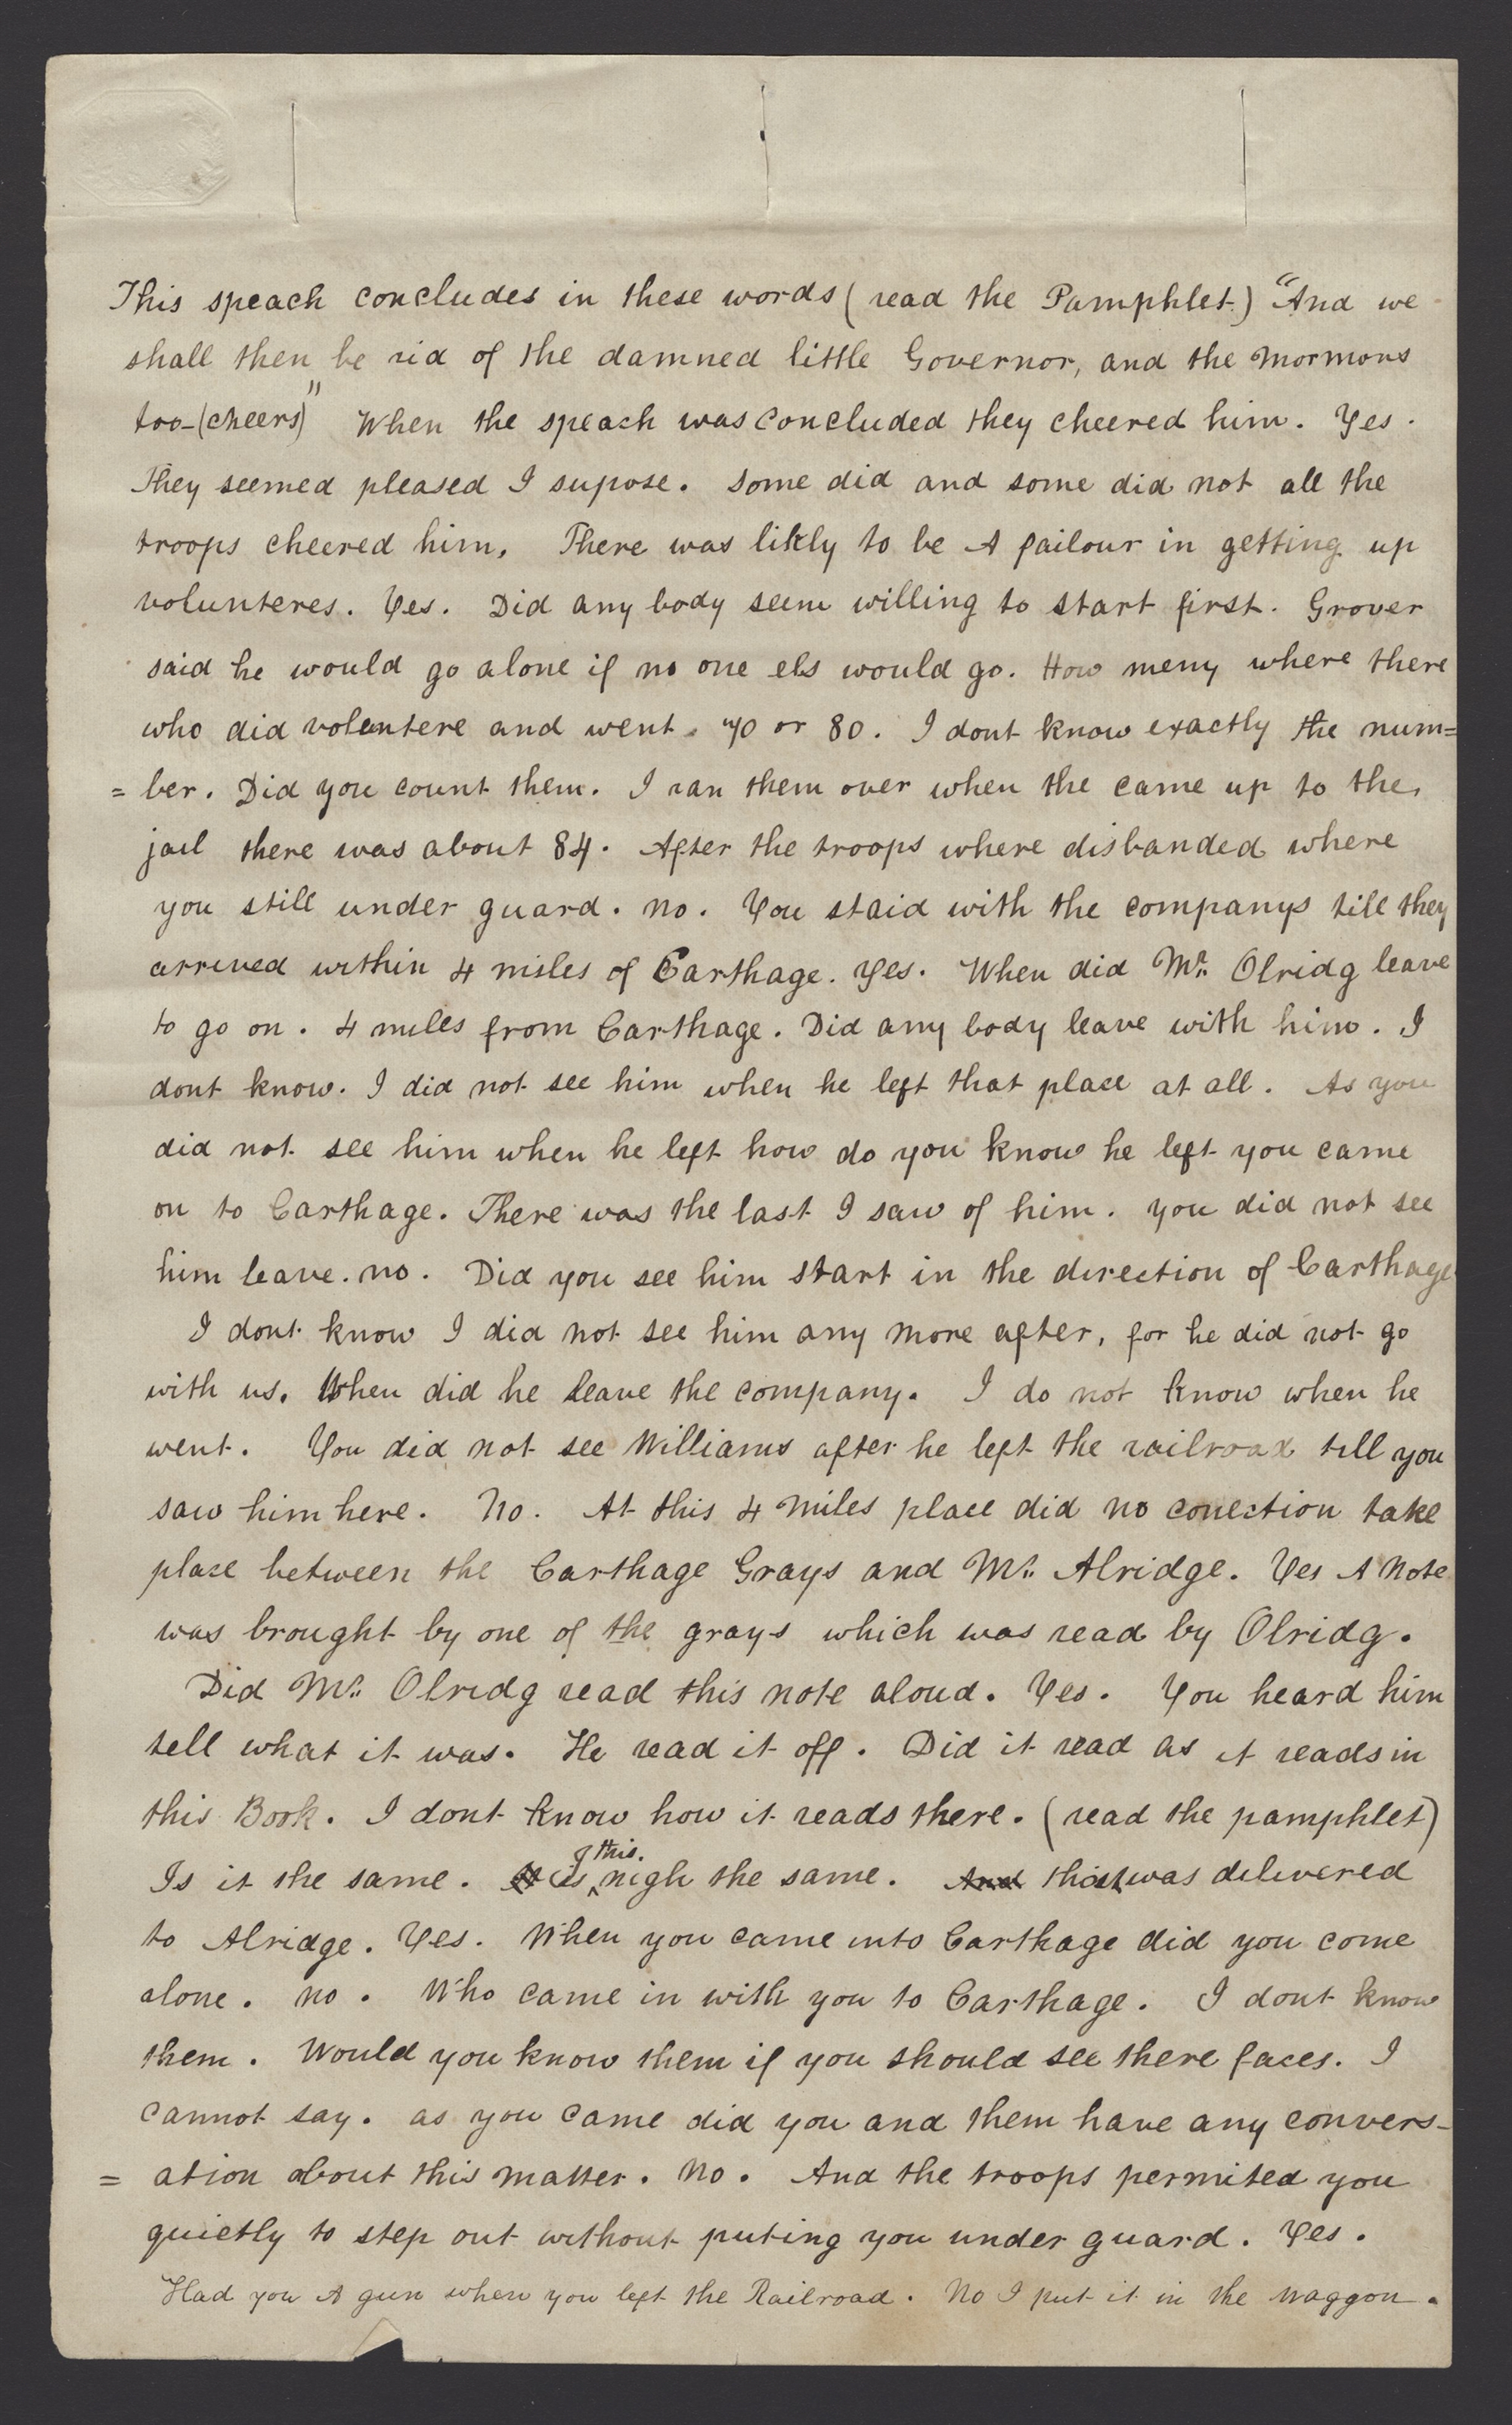 This speach concludes in these words (read the Pamphlet.) "And we
shall then be rid of the damned little Governor, and the Mormons
too-(cheers)" When the speach was concluded they cheered him. Yes.
They seemed pleased I supose. Some did and some did not all the
troops cheered him, There was likly to be A failour in getting up
volunteres. Yes. Did any body seem willing to start first. Grover
said he would go alone if no one els would go. How meny where there
who did voluntere and went. 70 or 80. I dont know exactly the num=
= ber. Did you count them. I ran them over when the came up to the,
jail there was about 84. After the troops where disbanded where
you still under guard. no. You staid with the companys till they
arrived within 4 miles of Carthage. Yes. When did Mr. Olridg leave
to go on. 4 miles from Carthage. Did any body leave with him. I
dont know. I did not see him when he left that place at all. As you
did not see him when he left how do you know he left you came
on to Carthage. There was the last I saw of him. you did not see
him leave. no. Did you see him start in the direction of Carthage
I dont know I did not see him any more after, for he did not go
with us. When did he leave the company. I do not know when he
went. You did not see Williams after he left the railroad till you
saw him here. No. At this 4 miles place did no conection take
place between the Carthage Grays and Mr. Alridge. Yes A Note
was brought by one of the grays which was read by Olridg.
Did Mr. Olridg read this note aloud. Yes. You heard him
tell what it was. He read it off. Did it read as it reads in
this Book. I dont know how it reads there. (read the pamphlet)
Is it the same. is this. nigh the same. And that was delivered
to Alridge. Yes. When you came into Carthage did you come
alone. no. Who came in with you to Carthage. I dont know
them. Would you know them if you should see there faces. I
cannot say. as you came did you and them have any convers-
= ation about this matter. No. And the troops permited you
quietly to step out without puting you under guard. Yes.
Had you A gun when you left the Railroad. No I put it in the waggon.